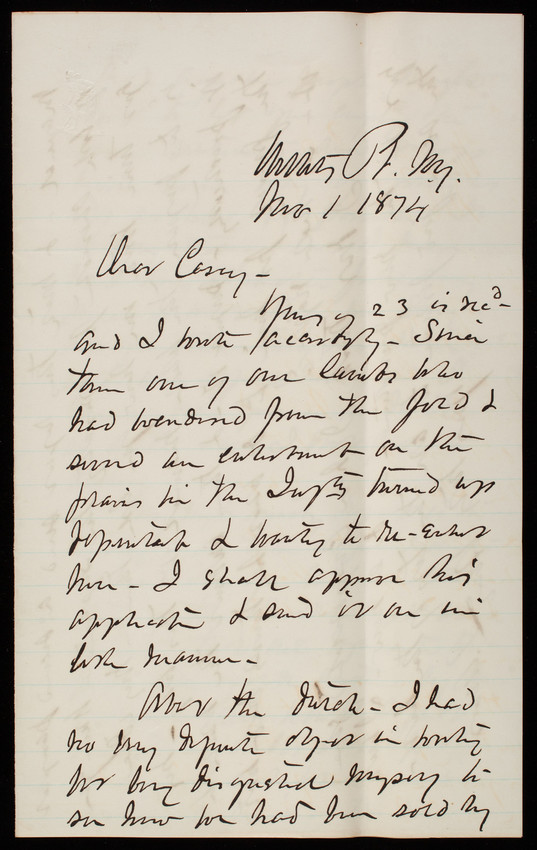 Willets Pt. N.Y.
Nov 1 1874
Dear Casey -
Yours of 23 is rec'd -
and I wrote accordingly - Since
then one of our lambs who
had wandered from the fold &
served an enlistment on the
plains in the Infty turned up
repentant & wanting to re-enlist
here - I shall approve his
application & send it on in
like manner -
About the Dutch - I had
no very definite object in writing
but being disgusted myself to
see how we had been sold by